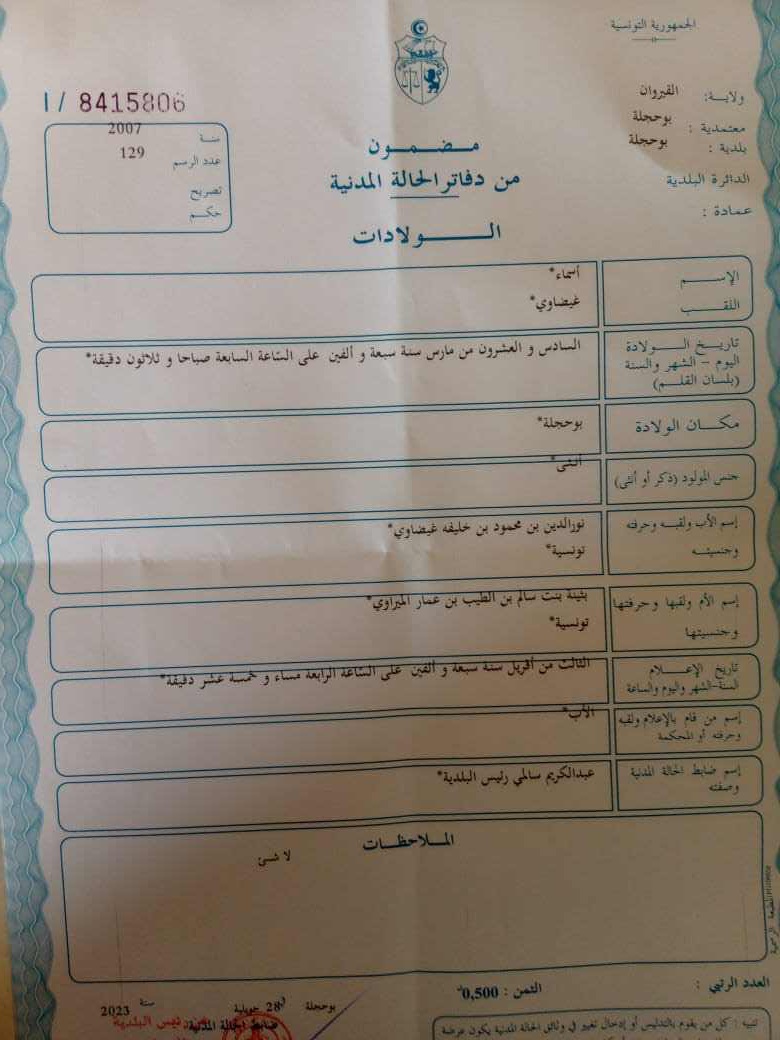 الجمهورية التونسية
ولاية: القيروان
معتمدية : بوحجلة
بلدية : بوحجلة
الدائرة البلدية
عمادة :
I / 8415806
سنة 2007
عدد الرسم 129
تصريح
حكم
مضمون
من دفاتر الحالة المدنية
الولادات
الإسم أسماء*
اللقب غيضاوي*
تاريخ الولادة
اليوم - الشهر والسنة
(بلسان القلم)
السادس و العشرون من مارس سنة سبعة و ألفين على السّاعة السابعة صباحا و ثلاثون دقيقة*
مكان الولادة بوحجلة*
جنس المولود (ذكر أو أنثى) أنثى*
إسم الأب ولقبه وحرفته نورالدين بن محمود بن خليفه غيضاوي*
وجنسيته تونسية*
إسم الأم ولقبها وحرفتها بثينة بنت سالم بن الطيب بن عمار الميراوي*
وجنسيتها تونسية*
تاريخ الإعلام
السنة-الشهر واليوم والساعة
الثالث من أفريل سنة سبعة و ألفين على السّاعة الرابعة مساء و خمسة عشر دقيقة*
إسم من قام بالإعلام ولقبه
وحرفته أو المحكمة
الأب*
إسم ضابط الحالة المدنية
وصفته
عبدالكريم سالمي رئيس البلدية*
الملاحظات
لا شئ
العدد الرتبي :
الثمن : 0,500
بوحجلة 28 جويلية سنة 2023
ضابط الحالة المدنية
رئيس البلدية
تنبيه : كل من يقوم بالتدليس أو إدخال تغيير في وثائق الحالة المدنية يكون عرضة